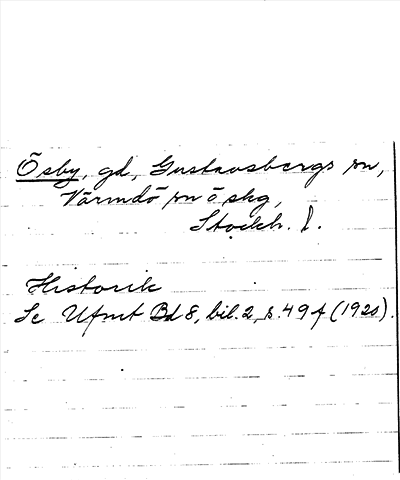 Ösby, gd, Gustavsbergs sn,
Värmdö sn ö skg,
Stockh. l.
Historik
Se Ufmt Bd 8, bil. 2, s. 49 f (1920).